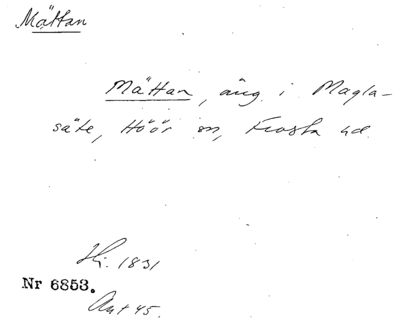 Mättan
Mättan, äng i Magla-
säte, Höör sn, Frosta hd.
Hj. 1831
Nr 6853.
Ant 45.